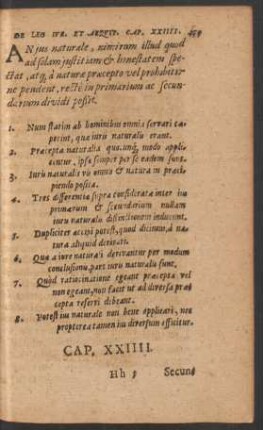 DE LEG IVR. ET AEQVIT. CAP. XXIIII.
AN jus naturale, nimirum illud quod
ad solam justitiam & honestatem spe
ctat, atq; à naturæ præcepto vel prohibitio
ne pendent, rectè in primarium ac secun
darium dividi posit.
1. Num statim ab hominibus omnia servari cæ
perint, quæ iuris naturalis erant.
2. Præcepta naturalia quocunq; modo appli
centur, ipsa semper per se eadem sunt.
3. Iuris naturalis vis omnis & natura in præci
piendo posita.
4. Tres differentiæ supra consideratæ inter ius
primarum & secundarium nullam
iuris naturalis distinctionem inducunt.
5. Dupliciter accipi potest, quod dicimus, à na
tura aliquid derivari.
6. Quæ à iure naturali derivantur per modum
conclusionis, pars iuris naturalis sunt.
7. Quòd ratiocinatione egeant præcepta, vel
non egeant, non facit ut ad diversa præ
cepta referri debeant.
8. Potest ius naturale non bene applicari, nec
propterea tamen ius diversum efficitur.
CAP. XXIIII.
Hh Secun